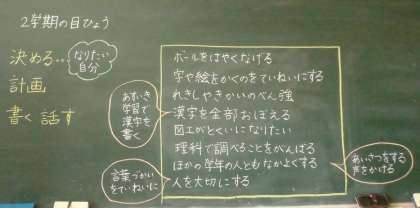 2学期の目ひょう
決める…
なりたい
自分
計画
書く 話す
ボールをはやくなげる
字や絵をかくのをていねいにする
れきしやきかいのべん強
漢字を全部おぼえる
図工がとくいになりたい
理科で調べることをがんばる
ほかの学年の人ともなかよくする
人を大切にする
学習で
漢字を
書く
言葉づかい
をていねいに
あいさつをする
声をかける